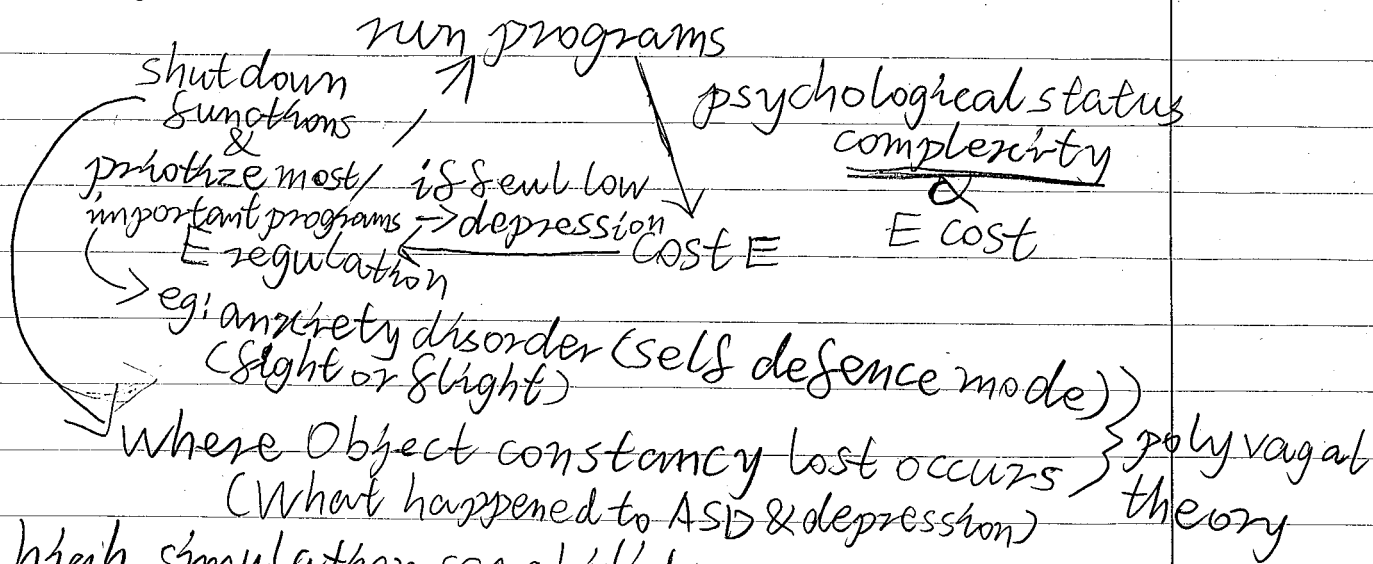 run programs
shutdown
functions
&
priotize most
important programs
if feul low
→ depression
E regulation
cost E
psychological status
complexity
∝
E cost
eg: anxiety disorder (self defence mode))
(fight or flight)
Where Object constancy lost occurs
(What happened to ASD & depression)
} polyvagal
theory
high simulation